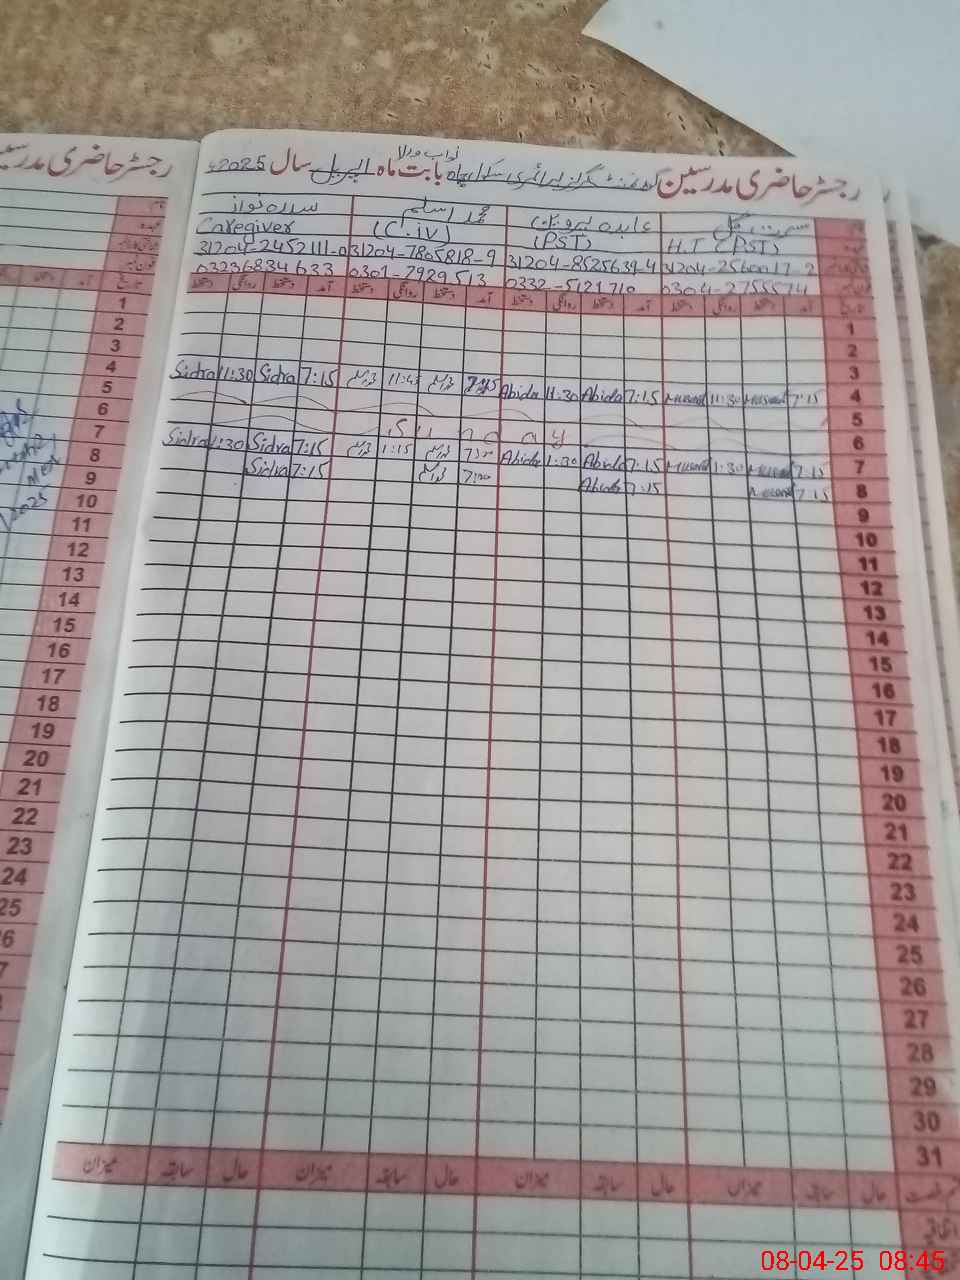 رجسٹر حاضری مدرسین گورنمنٹ گرلز پرائمری سکول چاہ نواب والا بابت ماہ اپریل سال 2025ء
رجسٹر حاضری مدرسین
نام مسرت گل عابدہ پروین محمد اسلم سدرہ نواز
عہدہ H.T (PST) (PST) (C.iv) Caregiver
31204-2560017-2 31204-8525639-4 31204-7805818-9 31204-2452111-0
0304-2755574 0332-5121710 0301-7929513 03236834633
تاریخ آمد دستخط روانگی دستخط آمد دستخط روانگی دستخط آمد دستخط روانگی دستخط آمد دستخط روانگی دستخط
1
2
3
4 7:15 11:30 7:15 Abida 11:30 Abida 11:45 7:15 Sidra 11:30 Sidra
5
6 Sunday
7 7:15 1:30 7:15 Abida 1:30 Abida 1:15 7:15 Sidra 1:30 Sidra
8 7:15 7:15 Abida 7:00 7:15 Sidra
9
10
11
12
13
14
15
16
17
18
19
20
21
22
23
24
25
26
27
28
29
30
31
حال سابقہ میزان حال سابقہ میزان حال سابقہ میزان حال سابقہ میزان
1
2
3
4
5
6
7
8
9
10
11
12
13
14
15
16
17
18
19
20
21
22
23
24
25
2025
08-04-25 08:45